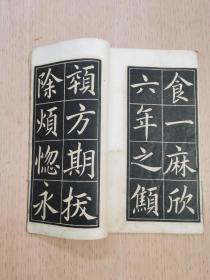 食一麻欣
六年之顦
顇方期拔
除煩惱永